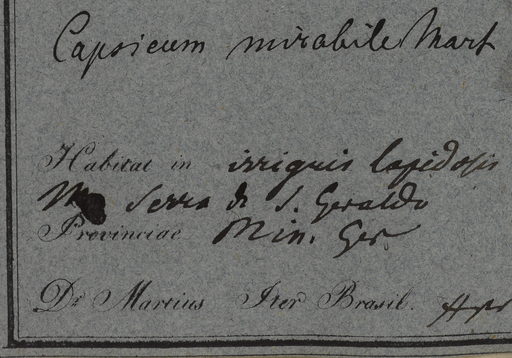 Capsicum mirabile Mart
Habitat in irriguis lapidosis
Serra de S. Geraldo
Provinciae Min. Ger.
Dr Martius Iter Brasil.